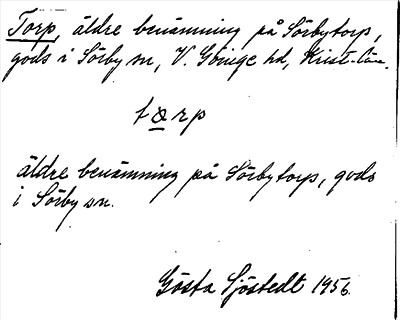 Torp, äldre benämning på Sörbytorp,
gods i Sörby sn, V. Göinge hd, Krist. län.
tɷrp
äldre benämning på Sörbytorp, gods
i Sörby sn.
Gösta Sjöstedt 1956.